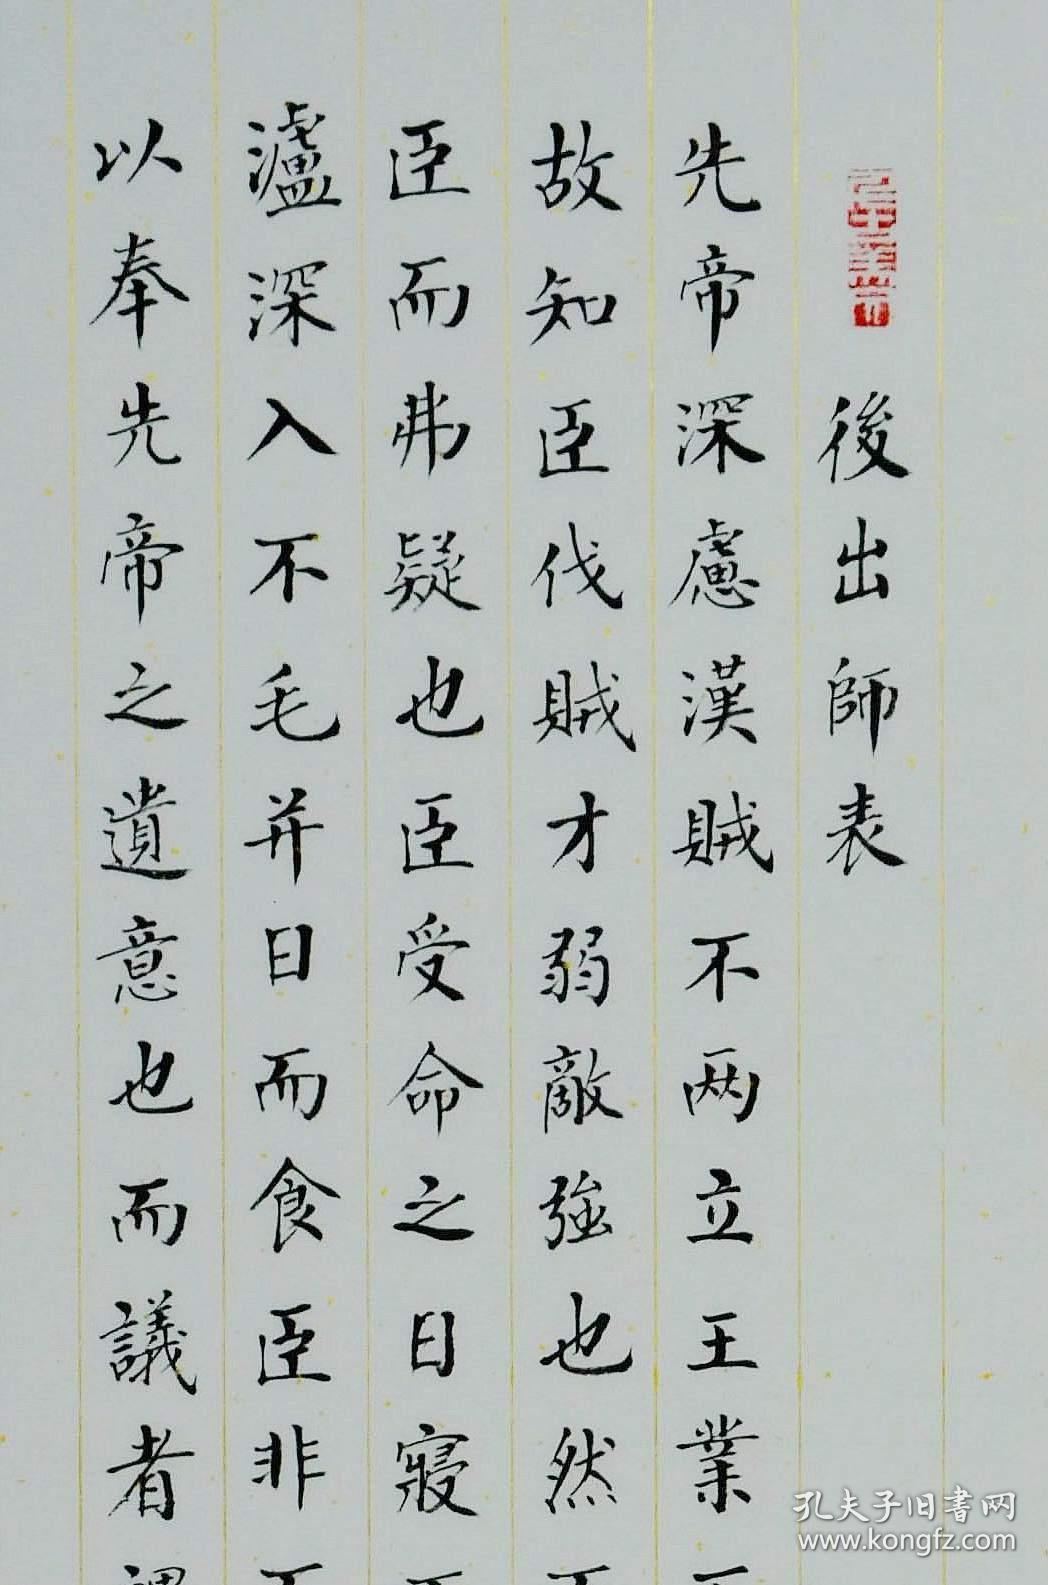 後出師表
先帝深慮漢賊不兩立王業不
故知臣伐賊才弱敵強也然不
臣而弗疑也臣受命之日寢不
瀘深入不毛并日而食臣非不
以奉先帝之遺意也而議者謂
孔夫子旧書网
www.kongfz.com